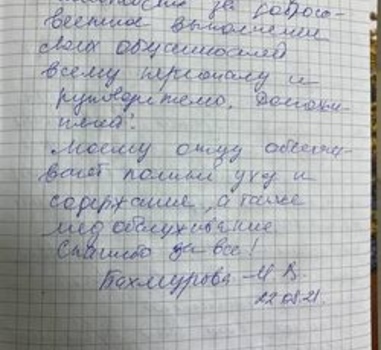 за добросо-
вестное выполнение
своих обязанностей
всему персоналу и
руководителю.
Моему отцу обеспечи-
вают полный уход и
содержание, а также
мед обслуживание
Спасибо за все!
Пахмурова М В.
22.08.21.